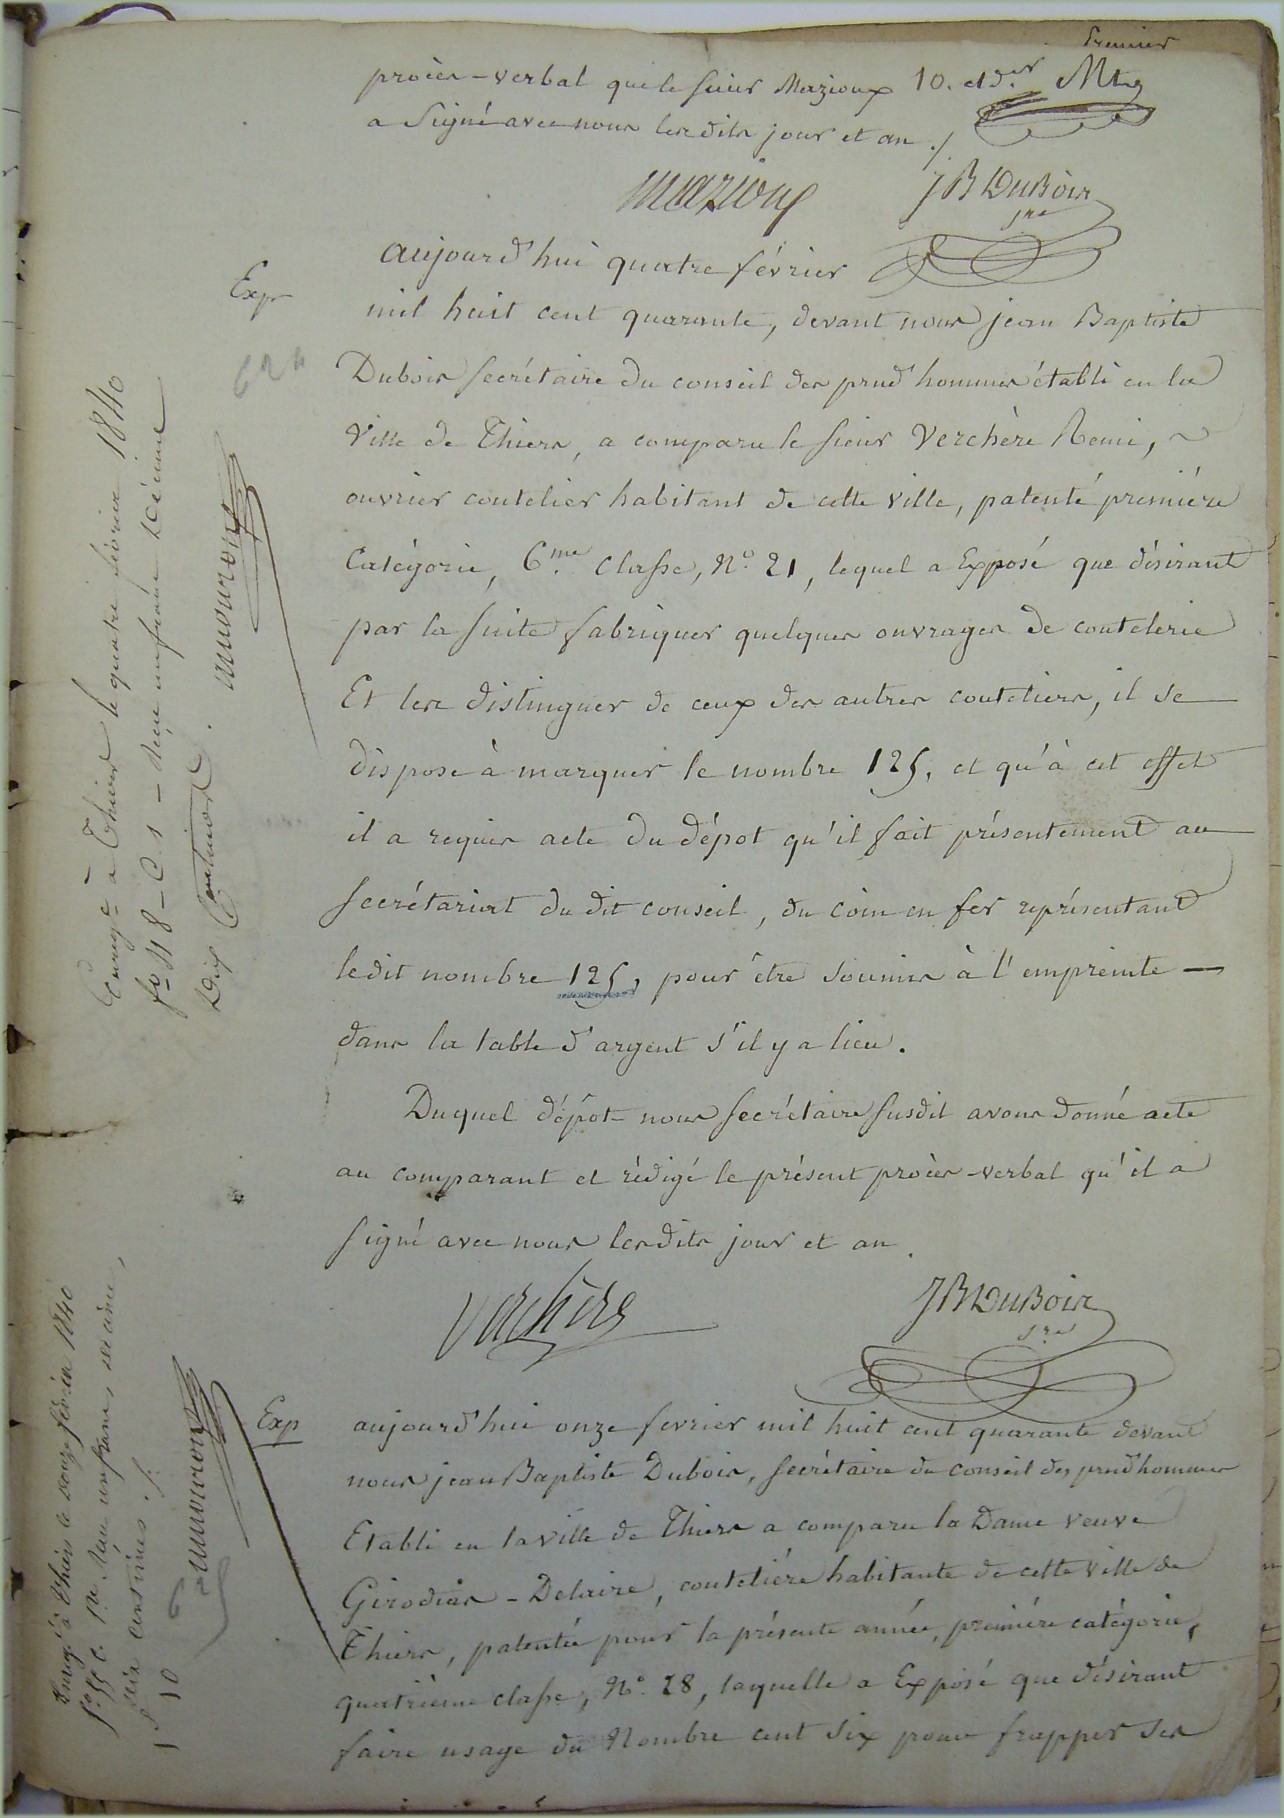 Premier
procès-verbal que le sieur Mazioux 10. et der.
a signé avec nous lesdits jour et an ./
Mazioux
JB DuBois
sre
Exp
624
aujourd'hui quatre février
mil huit cent quarante, devant nous jean Baptiste
Dubois secrétaire du conseil des prud'hommes établi en la
Ville de Thiers, a comparu le sieur Verchère Remi,
ouvrier coutelier habitant de cette ville, patenté première
Catégorie, 6.me Classe, N.o 21, lequel a Exposé que désirant
par la suite fabriquer quelques ouvrages de coutelerie
Et les distinguer de ceux des autres couteliers, il se
dispose à marquer le nombre 125, et qu'à cet effet
il a requis acte du dépot qu'il fait présentement au
secrétariat du dit conseil, du coin en fer représentant
ledit nombre 125, pour être soumis à l'empreinte
dans la table d'argent s'il y a lieu.
Duquel dépôt nous secrétaire susdit avons donné acte
au comparant et rédigé le présent procès-verbal qu'il a
signé avec nous lesdits jour et an.
Verchère
JB DuBois
sre
Enregé à Thiers le quatre février 1840
fo 48 - C. 1 - Reçu un franc décime
Dix Centimes.
Exp
625
aujourd'hui onze fevrier mil huit cent quarante devant
nous jean Baptiste Dubois, secrétaire du conseil des prud'hommes
Etabli en la ville de Thiers a comparu la Dame veuve
Girodias - Delaire, coutelière habitante de cette ville de
Thiers, patentée pour la présente année, première catégorie,
quatrième classe, N.o 28, laquelle a Exposé que désirant
faire usage du Nombre cent six pour frapper ses
Enregé à Thiers le douze février 1840
Reçu un franc décime,
dix centimes ./.
1 10